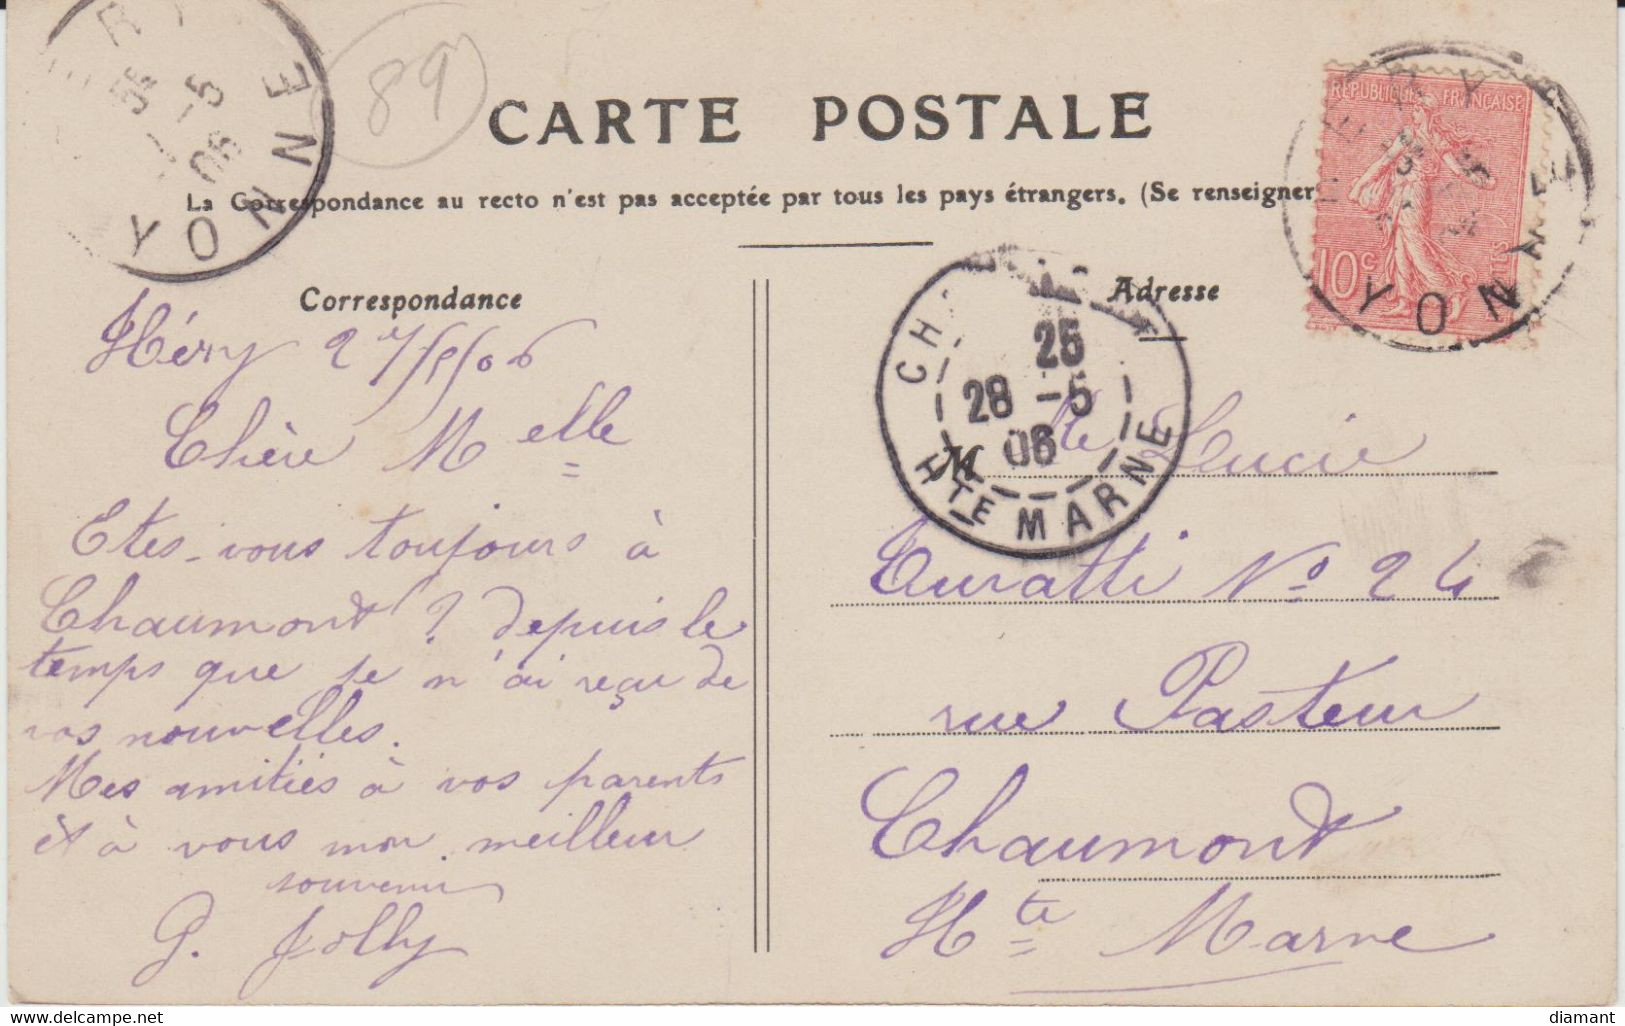 CARTE POSTALE
La Correspondance au recto n'est pas acceptée par tous les pays étrangers. (Se renseigner
Correspondance
Héry 27/5/06
Chère Melle
Etes-vous toujours à
Chaumont? depuis le
temps que je n'ai reçu de
vos nouvelles.
Mes amitiés à vos parents
et à vous mon meilleur
souvenir
G. Jolly
89
YONNE
-5
06
Adresse
Mlle Lucie
Turatti No 24
rue Pasteur
Chaumont
Hte Marne
CH
25
28 -5
06
HTE MARNE
REPUBLIQUE FRANÇAISE
10c
YONNE
www.delcampe.net
diamant